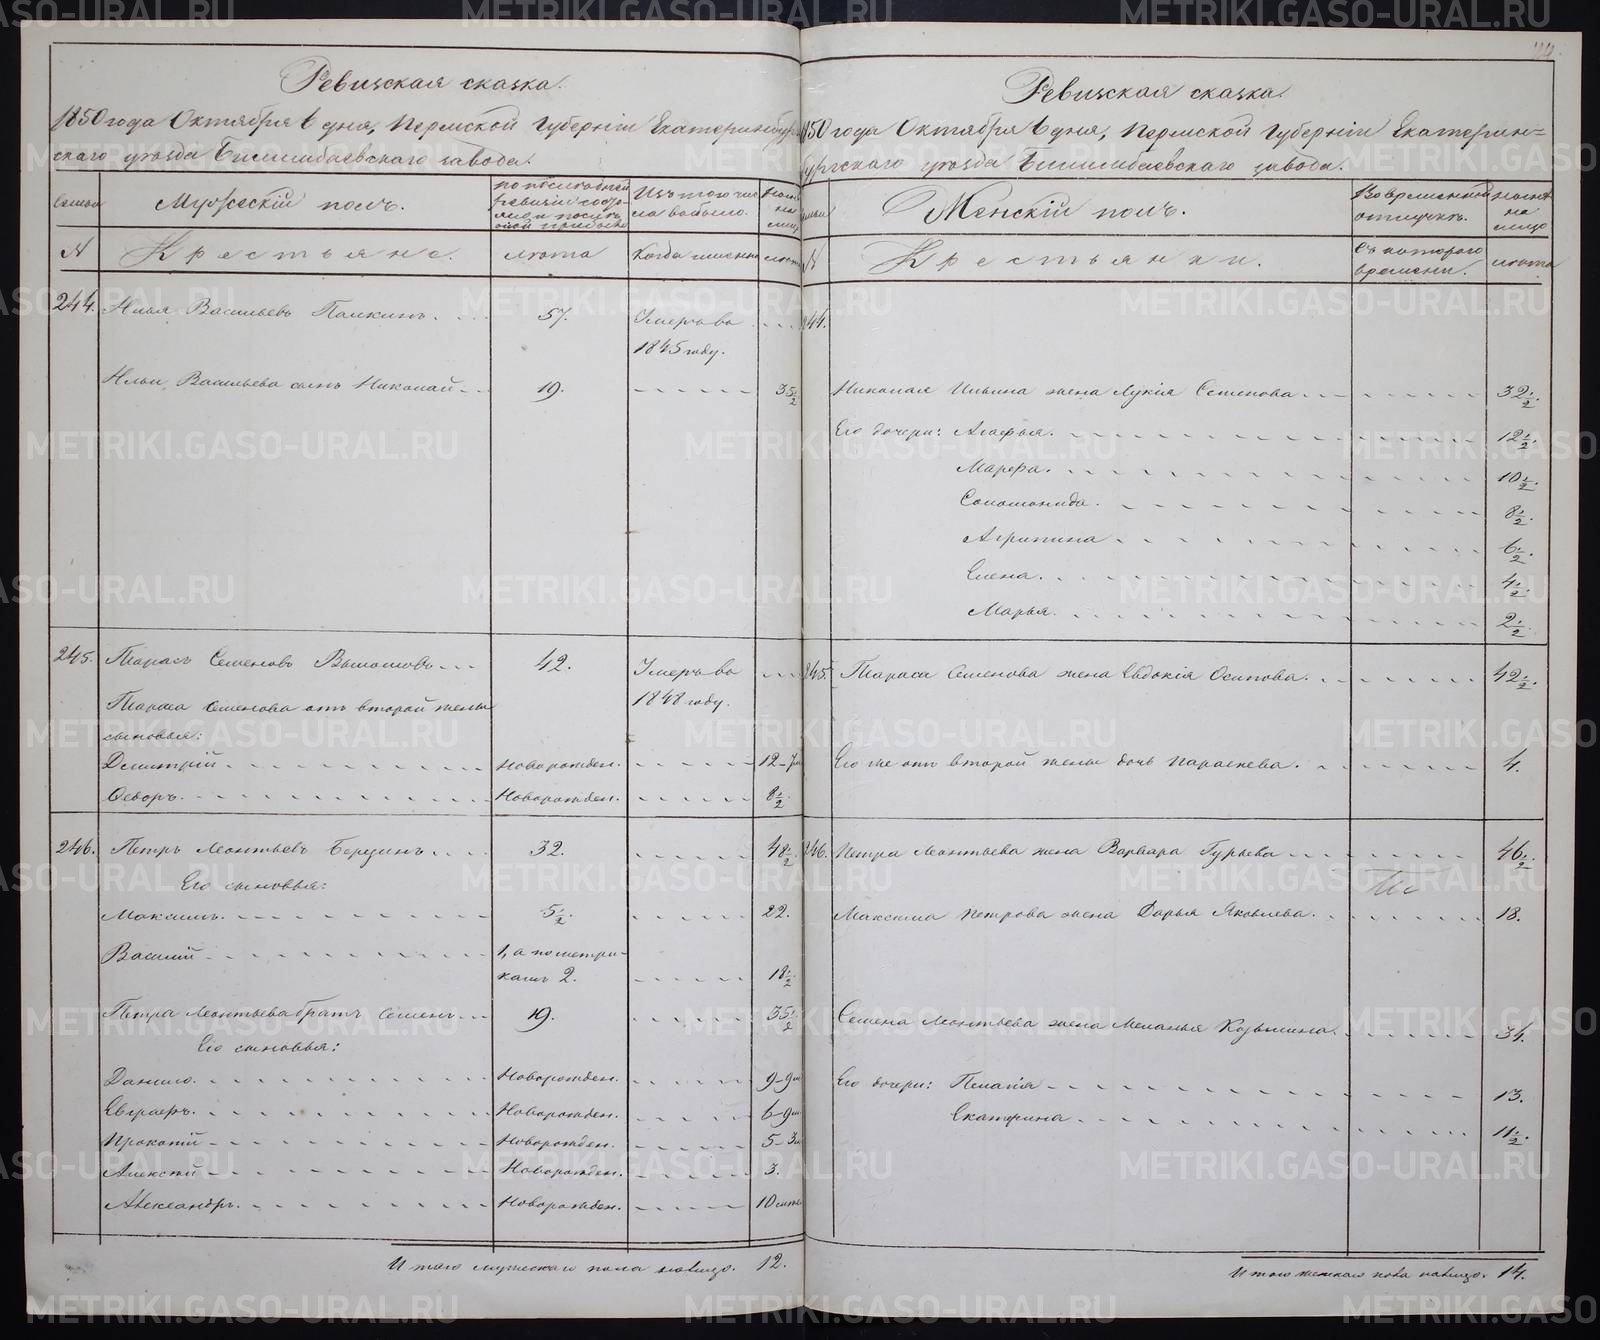 Ревизская сказка.
1850 года Октября 6 дня, Пермской Губерніи Екатеринбург-
скаго уезда Билимбаевскаго завода.
семьи
Мужескій полъ.
по последней ревизіи состояло и после оной прибыло
Изъ того числа выбыло.
Ныне на лицо
№
Крестьяне.
лета
Когда именно
лета
244. Илья Васильевъ Палкинъ. 57. Умеръ въ
1845 году.
Ильи Васильева сынъ Николай 19. 35 1/2
245. Тарасъ Семеновъ 42. Умеръ въ
Тараса Семенова отъ второй жены 1848 году.
сыновья:
Дмитрій Новорожден. 12-7м
Ѳедоръ. Новорожден. 8 1/2
246. Петръ Леонтьевъ Берединъ 32. 48 1/2
Его сыновья:
Максимъ. 5 1/2. 22.
Василій 1, а по метри-
камъ 2. 18 1/2
Петра Леонтьева братъ Семенъ 19. 35 1/2
Его сыновья:
Данило. Новорожден. 9-9м
Евграфъ. Новорожден. 6-9м
Прокопій Новорожден. 5-3м
Алексей Новорожден. 3.
Александръ. Новорожден. 10
Итого мужескаго пола налицо. 12.
Ревизская сказка.
1850 года Октября 6 дня, Пермской Губерніи Екатерин=
бургскаго уезда Билимбаевскаго завода.
семьи
Женскій полъ.
Во временной отлучке.
Ныне на лицо
№
Крестьянки.
Съ котораго времени.
лета
244.
Николая Ильина жена Лукія Семенова 32 1/2.
Его дочери: Агафья. 12 1/2.
Марфа. 10 1/2.
Соломонида. 8 1/2.
Агрипина 6 1/2.
Елена. 4 1/2.
Марья. 2 1/2.
245. Тараса Семенова жена Евдокія Осипова. 42 1/2.
Его же отъ второй жены дочь Параскева. 4.
246. Петра Леонтьева жена Варвара Гурьева 46 1/2.
Максима Петрова жена Дарья Яковлева. 18.
Семена Леонтьева жена Меланья Козьмина. 34.
Его дочери: Пелагія 13.
Екатерина 11 1/2.
Итого женскаго пола налицо. 14.
METRIKI.GASO-URAL.RU